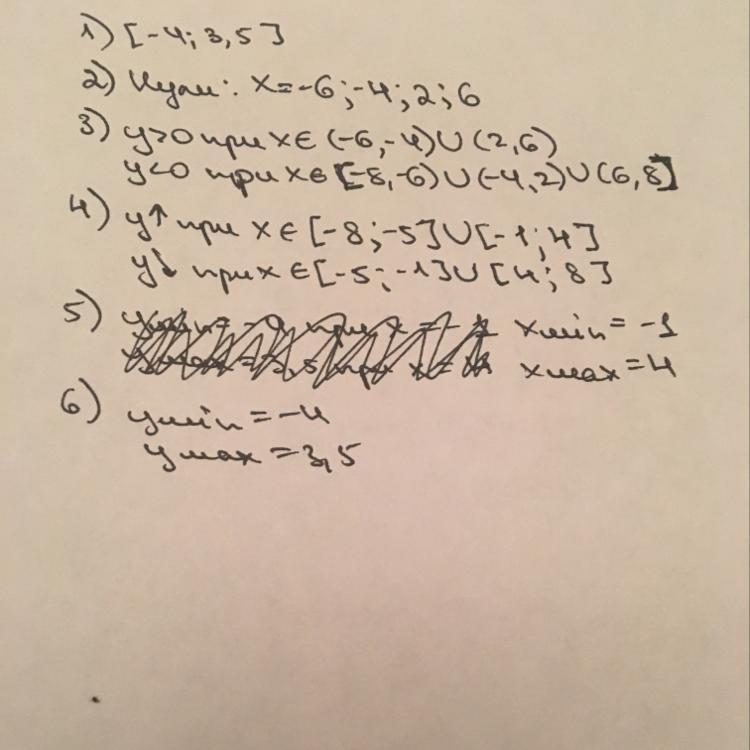 1) [-4; 3,5]
2) Нули: x=-6; -4; 2; 6
3) y>0 при x∈ (-6,-4)∪(2,6)
y<0 при x∈ [-8,-6)∪(-4,2)∪(6,8]
4) y↑ при x∈[-8;-5]∪[-1;4]
y↓ при x∈[-5;-1]∪[4;8]
5) xmin=-1
xmax=4
6) ymin=-4
ymax=3,5